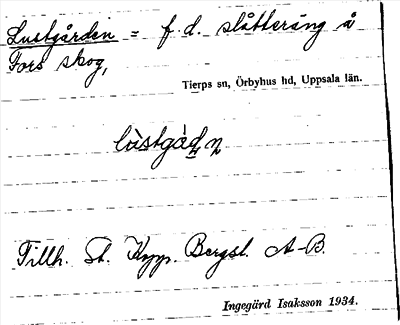 Lustgården = f. d. slåtteräng å
Fors skog,
Tierps sn, Örbyhus hd, Uppsala län.
lùstgàḍṇ
Tillh. St. Kopp. Bergsl. A-B.
Ingegärd Isaksson 1934.